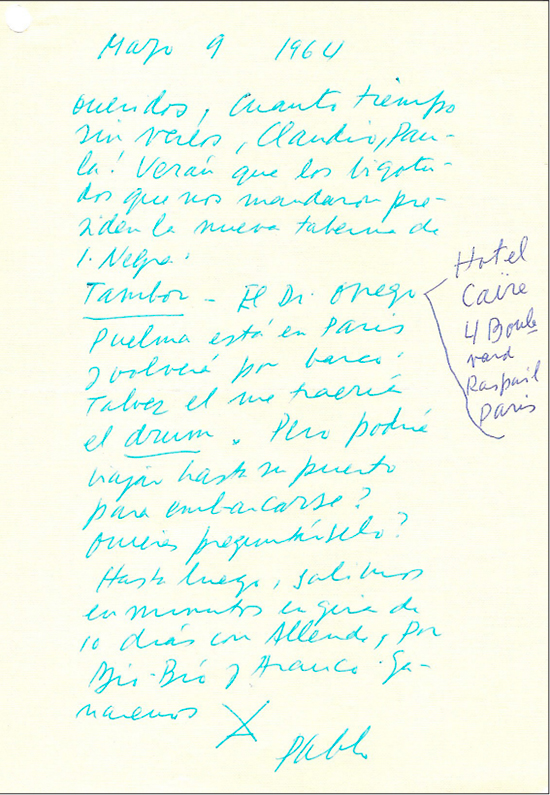 Mayo 9 1964
Queridos, Cuanto tiempo
sin verlos, Claudio, Pau-
la! Verán que los bigotu-
dos que nos mandaron pre-
siden la nueva taberna de
I. Negra.
Tambor - El Dr. Orrego
Puelma está en Paris
y volverá por barco.
Talvez el me traería
el drum. Pero podría
viajar hasta su puerto
para embarcarse?
Quieres preguntárselo?
Hasta luego, salimos
en minutos en gira de
10 dias con Allende, por
Bio-Bío y Arauco. Ga-
naremos X
Pablo
Hotel
Caire
4 Boule
vard
Raspail
Paris